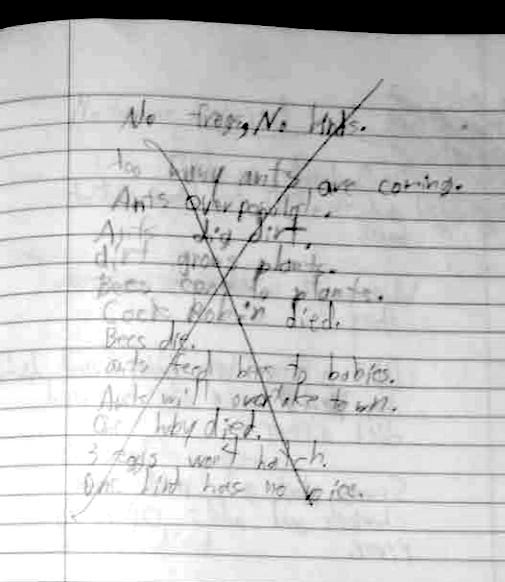 No frogs, No birds.
Too many ants are coming.
Ants overpopulate.
Ants dig dirt.
dirt grows plants.
Bees come to plants.
Cock Robin died.
Bees die.
ants feed bees to babies.
Ants will overtake town.
One baby died.
3 eggs won't hatch.
One bird has no voice.